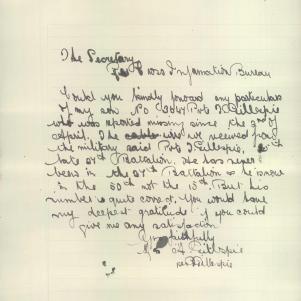 The Secretary
Red Cross Information Bureau
Could you kindly forward any particulars
of my son No Pvt J Gillespie
who was reported missing since the 2nd of
April. The cable we received from
the military said Pvt J Gillespie, 15th
late 27th Battalion. He has never
been in the 27th Battalion he is now
in the 50th not the 15th. But his
number is quite correct. You would have
my deepest gratitude if you could
give me any satisfaction
Yrs faithfully
Gillespie
per Gillespie